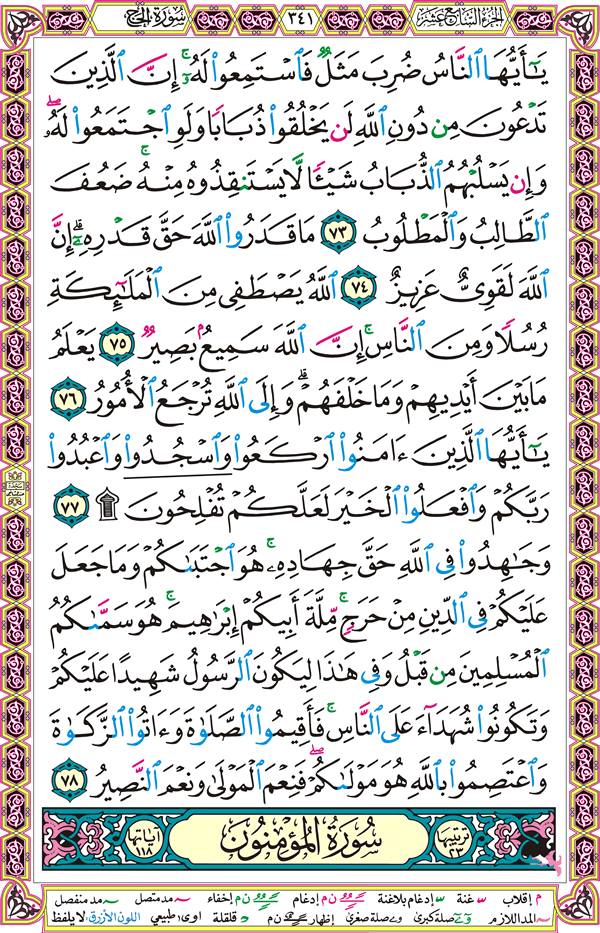 الجزء السابع عشر
٣٤١
سورة الحج
يَـٰٓأَيُّهَا ٱلنَّاسُ ضُرِبَ مَثَلٌ فَٱسْتَمِعُوا۟ لَهُۥٓ ۚ إِنَّ ٱلَّذِينَ
تَدْعُونَ مِن دُونِ ٱللَّهِ لَن يَخْلُقُوا۟ ذُبَابًا وَلَوِ ٱجْتَمَعُوا۟ لَهُۥ ۖ
وَإِن يَسْلُبْهُمُ ٱلذُّبَابُ شَيْـًٔا لَّا يَسْتَنقِذُوهُ مِنْهُ ۚ ضَعُفَ
ٱلطَّالِبُ وَٱلْمَطْلُوبُ ٧٣ مَا قَدَرُوا۟ ٱللَّهَ حَقَّ قَدْرِهِۦٓ ۗ إِنَّ
ٱللَّهَ لَقَوِىٌّ عَزِيزٌ ٧٤ ٱللَّهُ يَصْطَفِى مِنَ ٱلْمَلَـٰٓئِكَةِ
رُسُلًا وَمِنَ ٱلنَّاسِ ۚ إِنَّ ٱللَّهَ سَمِيعٌۢ بَصِيرٌ ٧٥ يَعْلَمُ
مَا بَيْنَ أَيْدِيهِمْ وَمَا خَلْفَهُمْ ۗ وَإِلَى ٱللَّهِ تُرْجَعُ ٱلْأُمُورُ ٧٦
يَـٰٓأَيُّهَا ٱلَّذِينَ ءَامَنُوا۟ ٱرْكَعُوا۟ وَٱسْجُدُوا۟ وَٱعْبُدُوا۟
رَبَّكُمْ وَٱفْعَلُوا۟ ٱلْخَيْرَ لَعَلَّكُمْ تُفْلِحُونَ ۩ ٧٧
وَجَـٰهِدُوا۟ فِى ٱللَّهِ حَقَّ جِهَادِهِۦ ۚ هُوَ ٱجْتَبَىٰكُمْ وَمَا جَعَلَ
عَلَيْكُمْ فِى ٱلدِّينِ مِنْ حَرَجٍ ۚ مِّلَّةَ أَبِيكُمْ إِبْرَٰهِيمَ ۚ هُوَ سَمَّىٰكُمُ
ٱلْمُسْلِمِينَ مِن قَبْلُ وَفِى هَـٰذَا لِيَكُونَ ٱلرَّسُولُ شَهِيدًا عَلَيْكُمْ
وَتَكُونُوا۟ شُهَدَآءَ عَلَى ٱلنَّاسِ ۚ فَأَقِيمُوا۟ ٱلصَّلَوٰةَ وَءَاتُوا۟ ٱلزَّكَوٰةَ
وَٱعْتَصِمُوا۟ بِٱللَّهِ هُوَ مَوْلَىٰكُمْ ۖ فَنِعْمَ ٱلْمَوْلَىٰ وَنِعْمَ ٱلنَّصِيرُ ٧٨
ترتيبها ٢٣
سُورَةُ المُؤْمِنُونَ
آياتها ١١٨
م إقلاب غنة إدغام بلاغنة ن م إدغام ن م إخفاء مد متصل مد منفصل
المد اللازم صلة كبرى صلة صغرى إظهار ن م قلقلة اوى؛ طبيعي اللون الأزرق: لا يلفظ